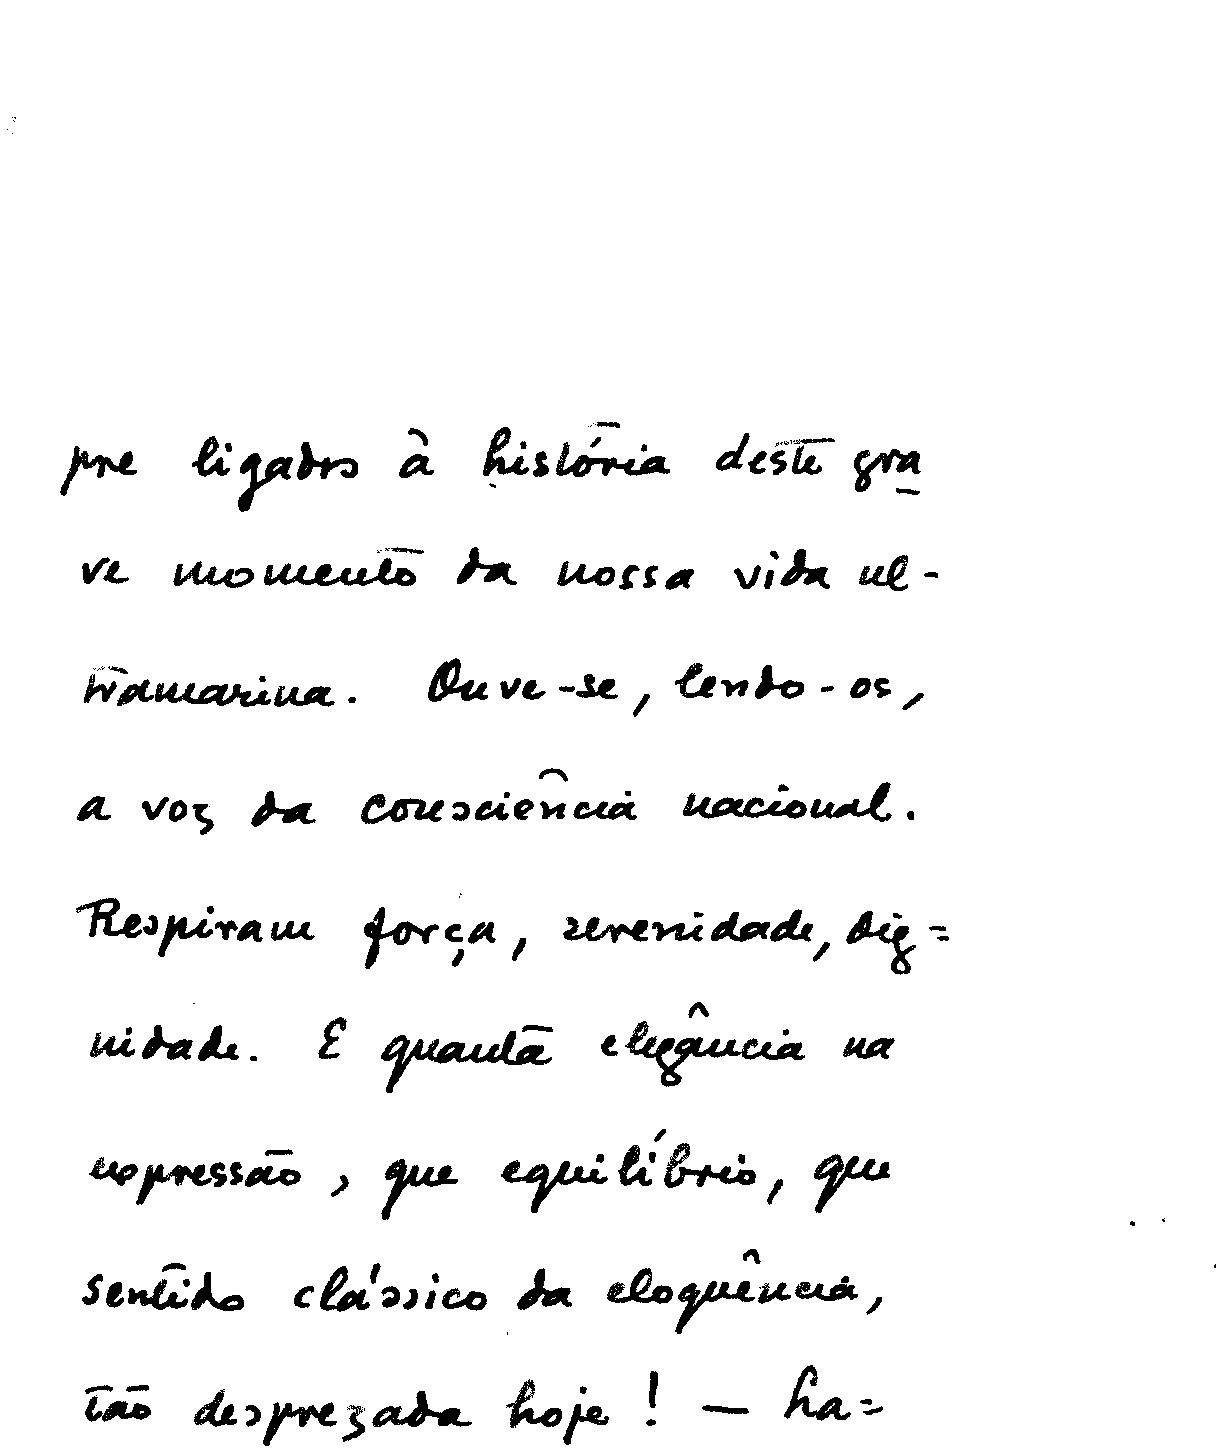 pre ligados à história deste gra
ve momento da nossa vida ul-
tramarina. Ouve-se, lendo-os,
a voz da consciência nacional.
Respiram força, serenidade, dig=
nidade. E quanta elegância na
expressão, que equilíbrio, que
sentido clássico da eloquência,
tão desprezada hoje! — ha=